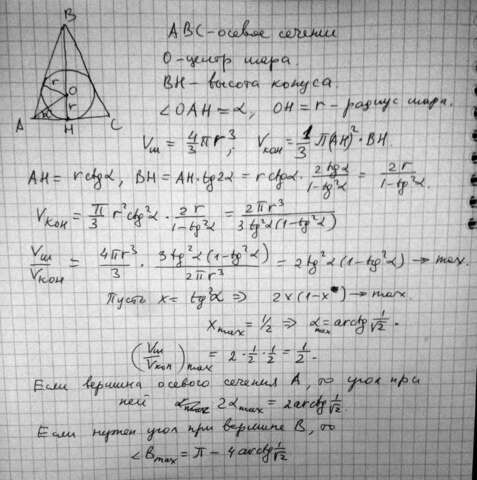 B
r
O
r
α
A
H
C
ABC - осевое сечение
О - центр шара.
BH - высота конуса.
∠OAH = α, OH = r - радиус шара.
Vш = 4/3 πr³; Vкон = 1/3 π(AH)² · BH.
AH = r ctgα, BH = AH · tg2α = r ctgα · 2tgα/(1-tg²α) = 2r/(1-tg²α).
Vкон = π/3 r² ctg²α · 2r/(1-tg²α) = 2πr³/(3tg²α(1-tg²α))
Vш/Vкон = 4πr³/3 · 3tg²α(1-tg²α)/(2πr³) = 2tg²α(1-tg²α) → max.
Пусть x = tg²α ⇒ 2x(1-x) → max.
xmax = 1/2 ⇒ αmax = arctg 1/√2.
(Vш/Vкон)max = 2 · 1/2 · 1/2 = 1/2.
Если вершина осевого сечения А, то угол при
ней 2αmax = 2arctg 1/√2.
Если нужен угол при вершине В, то
∠Bmax = π - 4arctg 1/√2